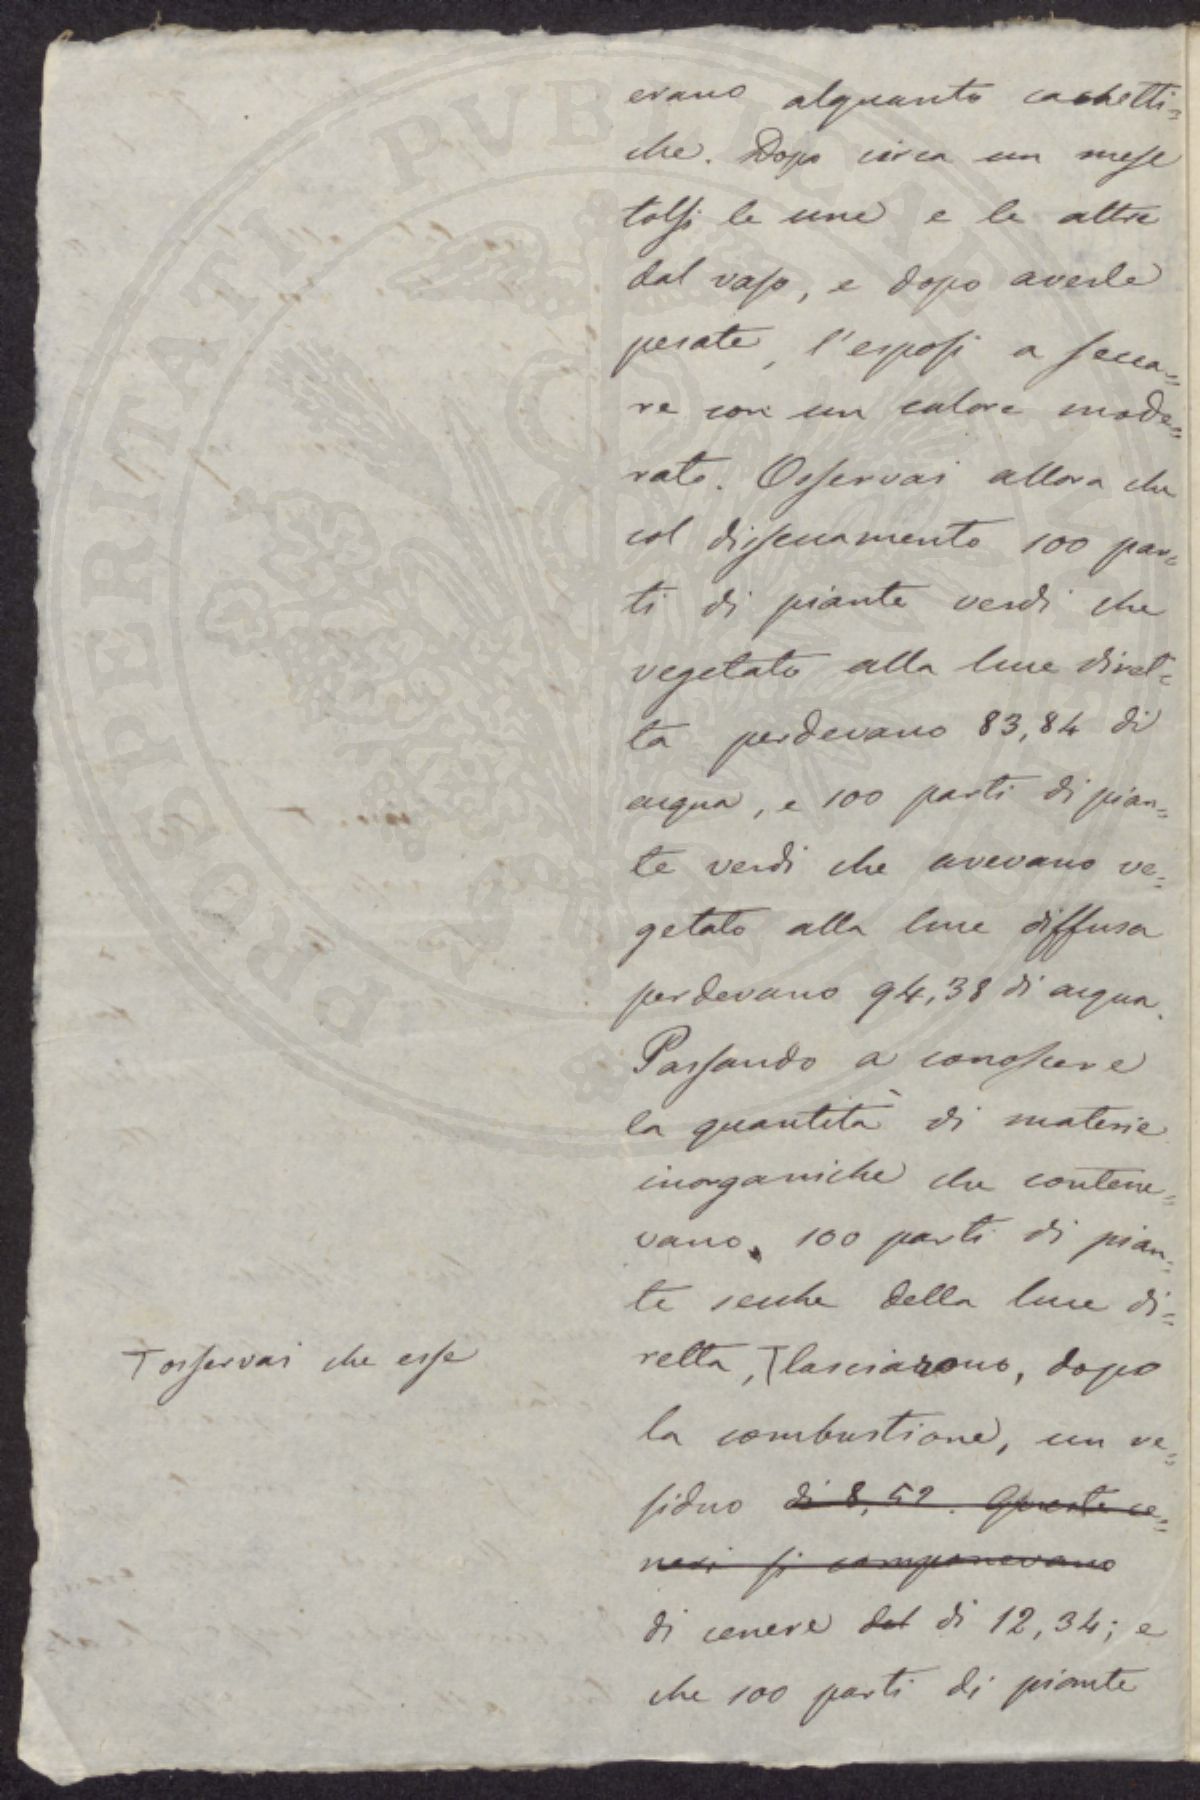 erano alquanto cachetti=
che. Dopo circa un mese
tolsi le une e le altre
dal vaso, e dopo averle
pesate, l'esposi a secca=
re con un calore mode=
rato. Osservai allora che
col disseccamento 100 par=
ti di piante verdi che
vegetato alla luce diret=
ta perdevano 83,84 di
acqua, e 100 parti di pian=
te verdi che avevano ve=
getato alla luce diffusa
perdevano 94,38 di acqua.
Passando a conoscere
la quantità di materie
inorganiche che contene=
vano 100 parti di pian=
te secche della luce di=
retta, T lasciarono, dopo
T osservai che esse
la combustione, un re=
siduo di 8,52. Queste ce=
neri si componevano
di cenere del di 12,34; e
che 100 parti di piante
PROSPERITATI PVBLICAE